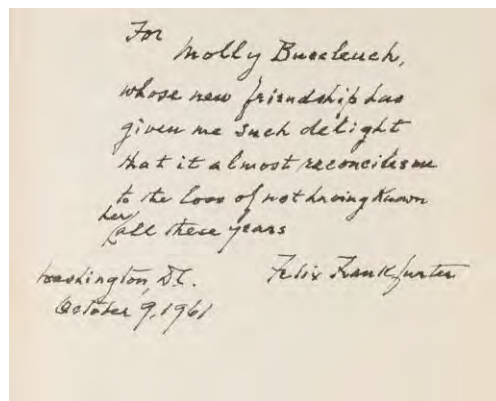 For
Molly Buccleuch,
whose new friendship has
given me such delight
that it almost reconciles me
to the loss of not having known
her all these years
Washington, D.C. Felix Frankfurter
October 9, 1961